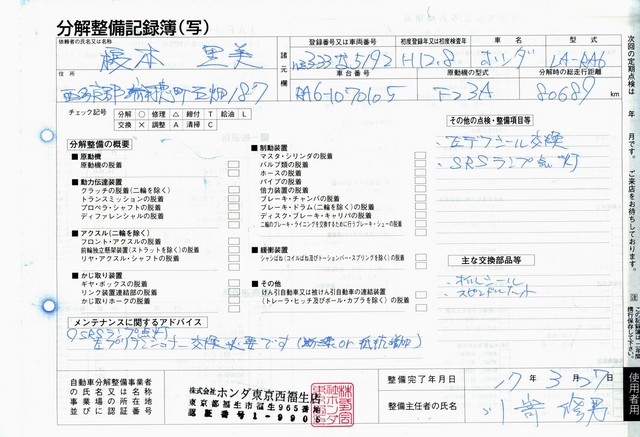 分解整備記録簿(写)
依頼者の氏名又は名称
榎本 里美
住所
諸元欄
登録番号又は車両番号
初度登録年又は初度検査年
H12.8
車名
ホンダ
型式
LA-RA6
車台番号
RA6-1070105
原動機の型式
F23A
分解時の総走行距離
80689 km
チェック記号
分解 ○ 修理 △ 締付 T 給油 L
交換 × 調整 A 清掃 C
分解整備の概要
■原動機
原動機の脱着
■動力伝達装置
クラッチの脱着(二輪を除く)
トランスミッションの脱着
プロペラ・シャフトの脱着
ディファレンシャルの脱着
■アクスル(二輪を除く)
フロント・アクスルの脱着
前輪独立懸架装置(ストラットを除く)の脱着
リヤ・アクスル・シャフトの脱着
■かじ取り装置
ギヤ・ボックスの脱着
リンク装置連結部の脱着
かじ取りホークの脱着
■制動装置
マスタ・シリンダの脱着
バルブ類の脱着
ホースの脱着
パイプの脱着
倍力装置の脱着
ブレーキ・チャンバの脱着
ブレーキ・ドラム(二輪を除く)の脱着
ディスク・ブレーキ・キャリパの脱着
二輪のブレーキ・ライニングを交換するために行うブレーキ・シューの脱着
■緩衝装置
シャシばね(コイルばね及びトーションバー・スプリングを除く)の脱着
■その他
けん引自動車又は被けん引自動車の連結装置
(トレーラ・ヒッチ及びボール・カプラを除く)の脱着
その他の点検・整備項目等
SRSランプ点灯
主な交換部品等
・オイルシール
・スピンドルナット
メンテナンスに関するアドバイス
SRSランプ点灯
左プリテンショナー交換必要です(断線or抵抗増加)
自動車分解整備事業者
の氏名又は名称
事業場の所在地
並びに認証番号
株式会社ホンダ東京西福生店
東京都福生市福生965番地
認証番号1-9905
整備完了年月日
17年3月27日
整備主任者の氏名
次回の定期点検は 年 月です。ご来店をお待ちしております。
使用者用